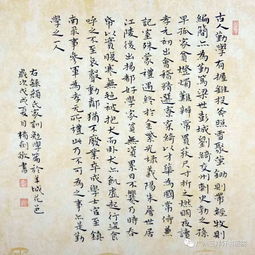 古人勤學有握錐投斧照雪聚螢鋤則帶經牧則
編簡亦為勤篤梁世彭城劉綺交州刺史勃之孫
早孤家貧燈燭難辦常買荻尺寸折之燃明夜讀
孝元初出會稽精選寮寀綺以才華為國常侍兼
記室殊蒙禮遇終於金紫光祿義陽朱詹世居
江陵後出揚都好學家貧無資累日不爨乃時吞
紙以實腹寒無氈被抱犬而卧犬亦飢虛起行盜食
呼之不至哀聲動鄰猶不廢業卒成學士官至鎮
南錄事參軍為孝元所禮此乃不可為之事亦是勤
學之一人
右錄顏氏家訓勉學篇於羊城花邑
歲次戊戌夏日楊劍敬書